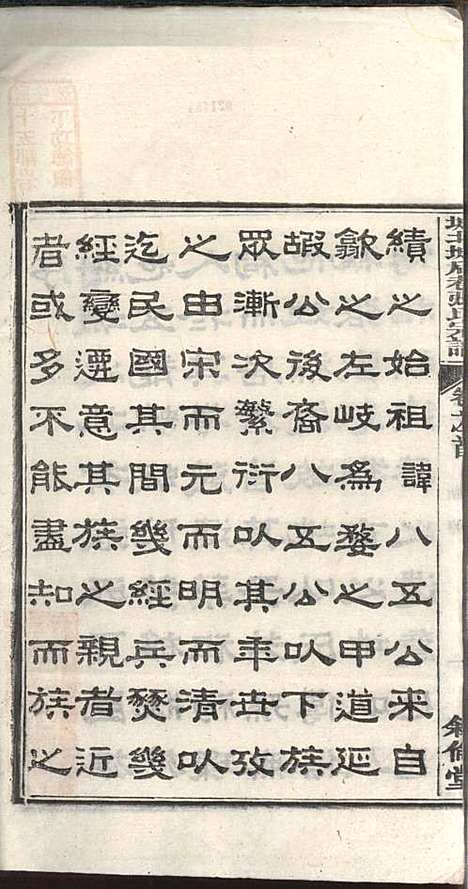 績之始祖諱八五公来自
歙之左岐為婺之甲道延
嘏公後裔八五公以下族
眾漸次繁衍以其年世攷
之由宋而元而明而清以
迄民國其間幾經兵燹幾
經變遷意其族之親者近
者或多不能盡知而族之
卷之首
敘倫堂